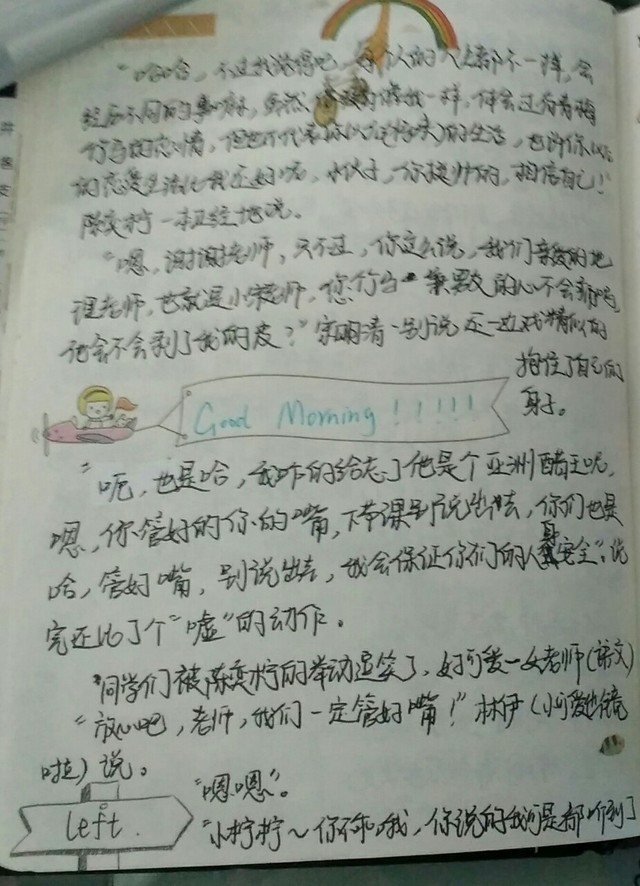 “哈哈，不过我觉得吧，每个人的人生都不一样，会
经历不同的事嘛，虽然 我一样，体会过青梅
竹马的恋情，但也不代表你以后 的生活，也许你以后
的恋爱生活比我还好呢，小伙子，你挺帅的，相信自己！”
陈奕柠一本正经地说。
“嗯，谢谢老师，只不过，你这么说，我们亲爱的地
理老师，也就是小宋老师，您 的心不会
他会不会剥了我的皮？”宋明清 别说还一边戏精似的
抱住了自己的
身子。
Good Morning！！！！！
“呃，也是哈，我咋的给忘了他是个亚洲醋王呢，
嗯，你管好的你的嘴，下节课别说出去，你们也是
哈，管好嘴，别说出去，我会保证你们的人身安全”，说
完还比了个“嘘”的动作。
同学们被陈奕柠的举动逗笑了，好可爱一女老师（课文）
“放心吧，老师，我们一定管好嘴！”林伊（小可爱 镜
啦）说。
“嗯嗯”。
left.
“小柠柠～你不乖哦，你说的我可是都听到了